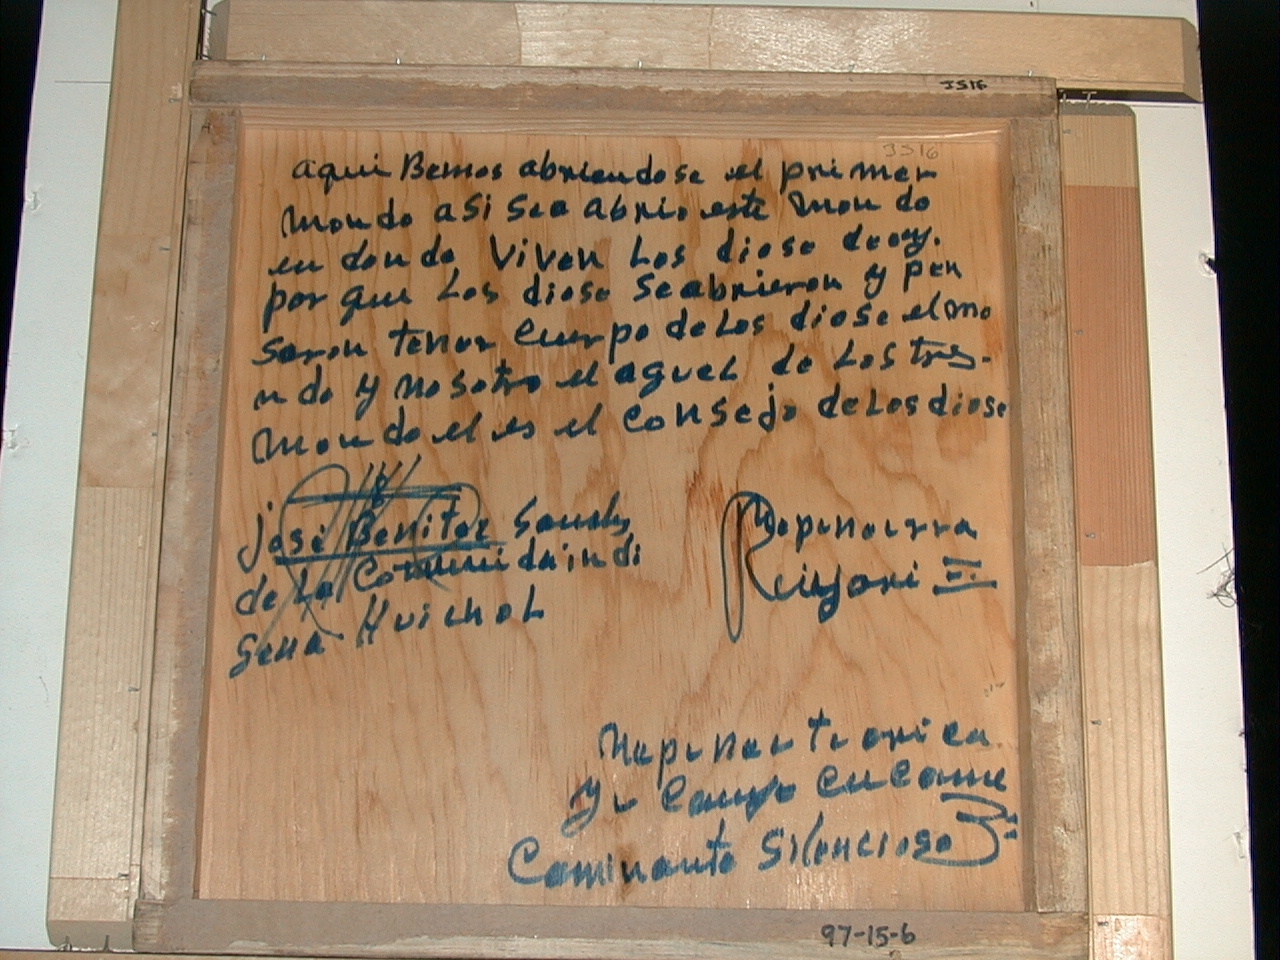 JS16
JS16
aqui Bemos abriendose el primer
mondo asi sea abrio este mondo
en donde viven Los diose deay.
por que Los diose seabrieron y pen
saron tener Cuerpo de Los diose el mo
ndo y nosotro el aguel de Los tres-
mondo el es el Consejo de Los diose
José Benitez Sanches
de La Comunida indi
gena Huichol
Reiyari III
y
Caminante Silencioso
97-15-6